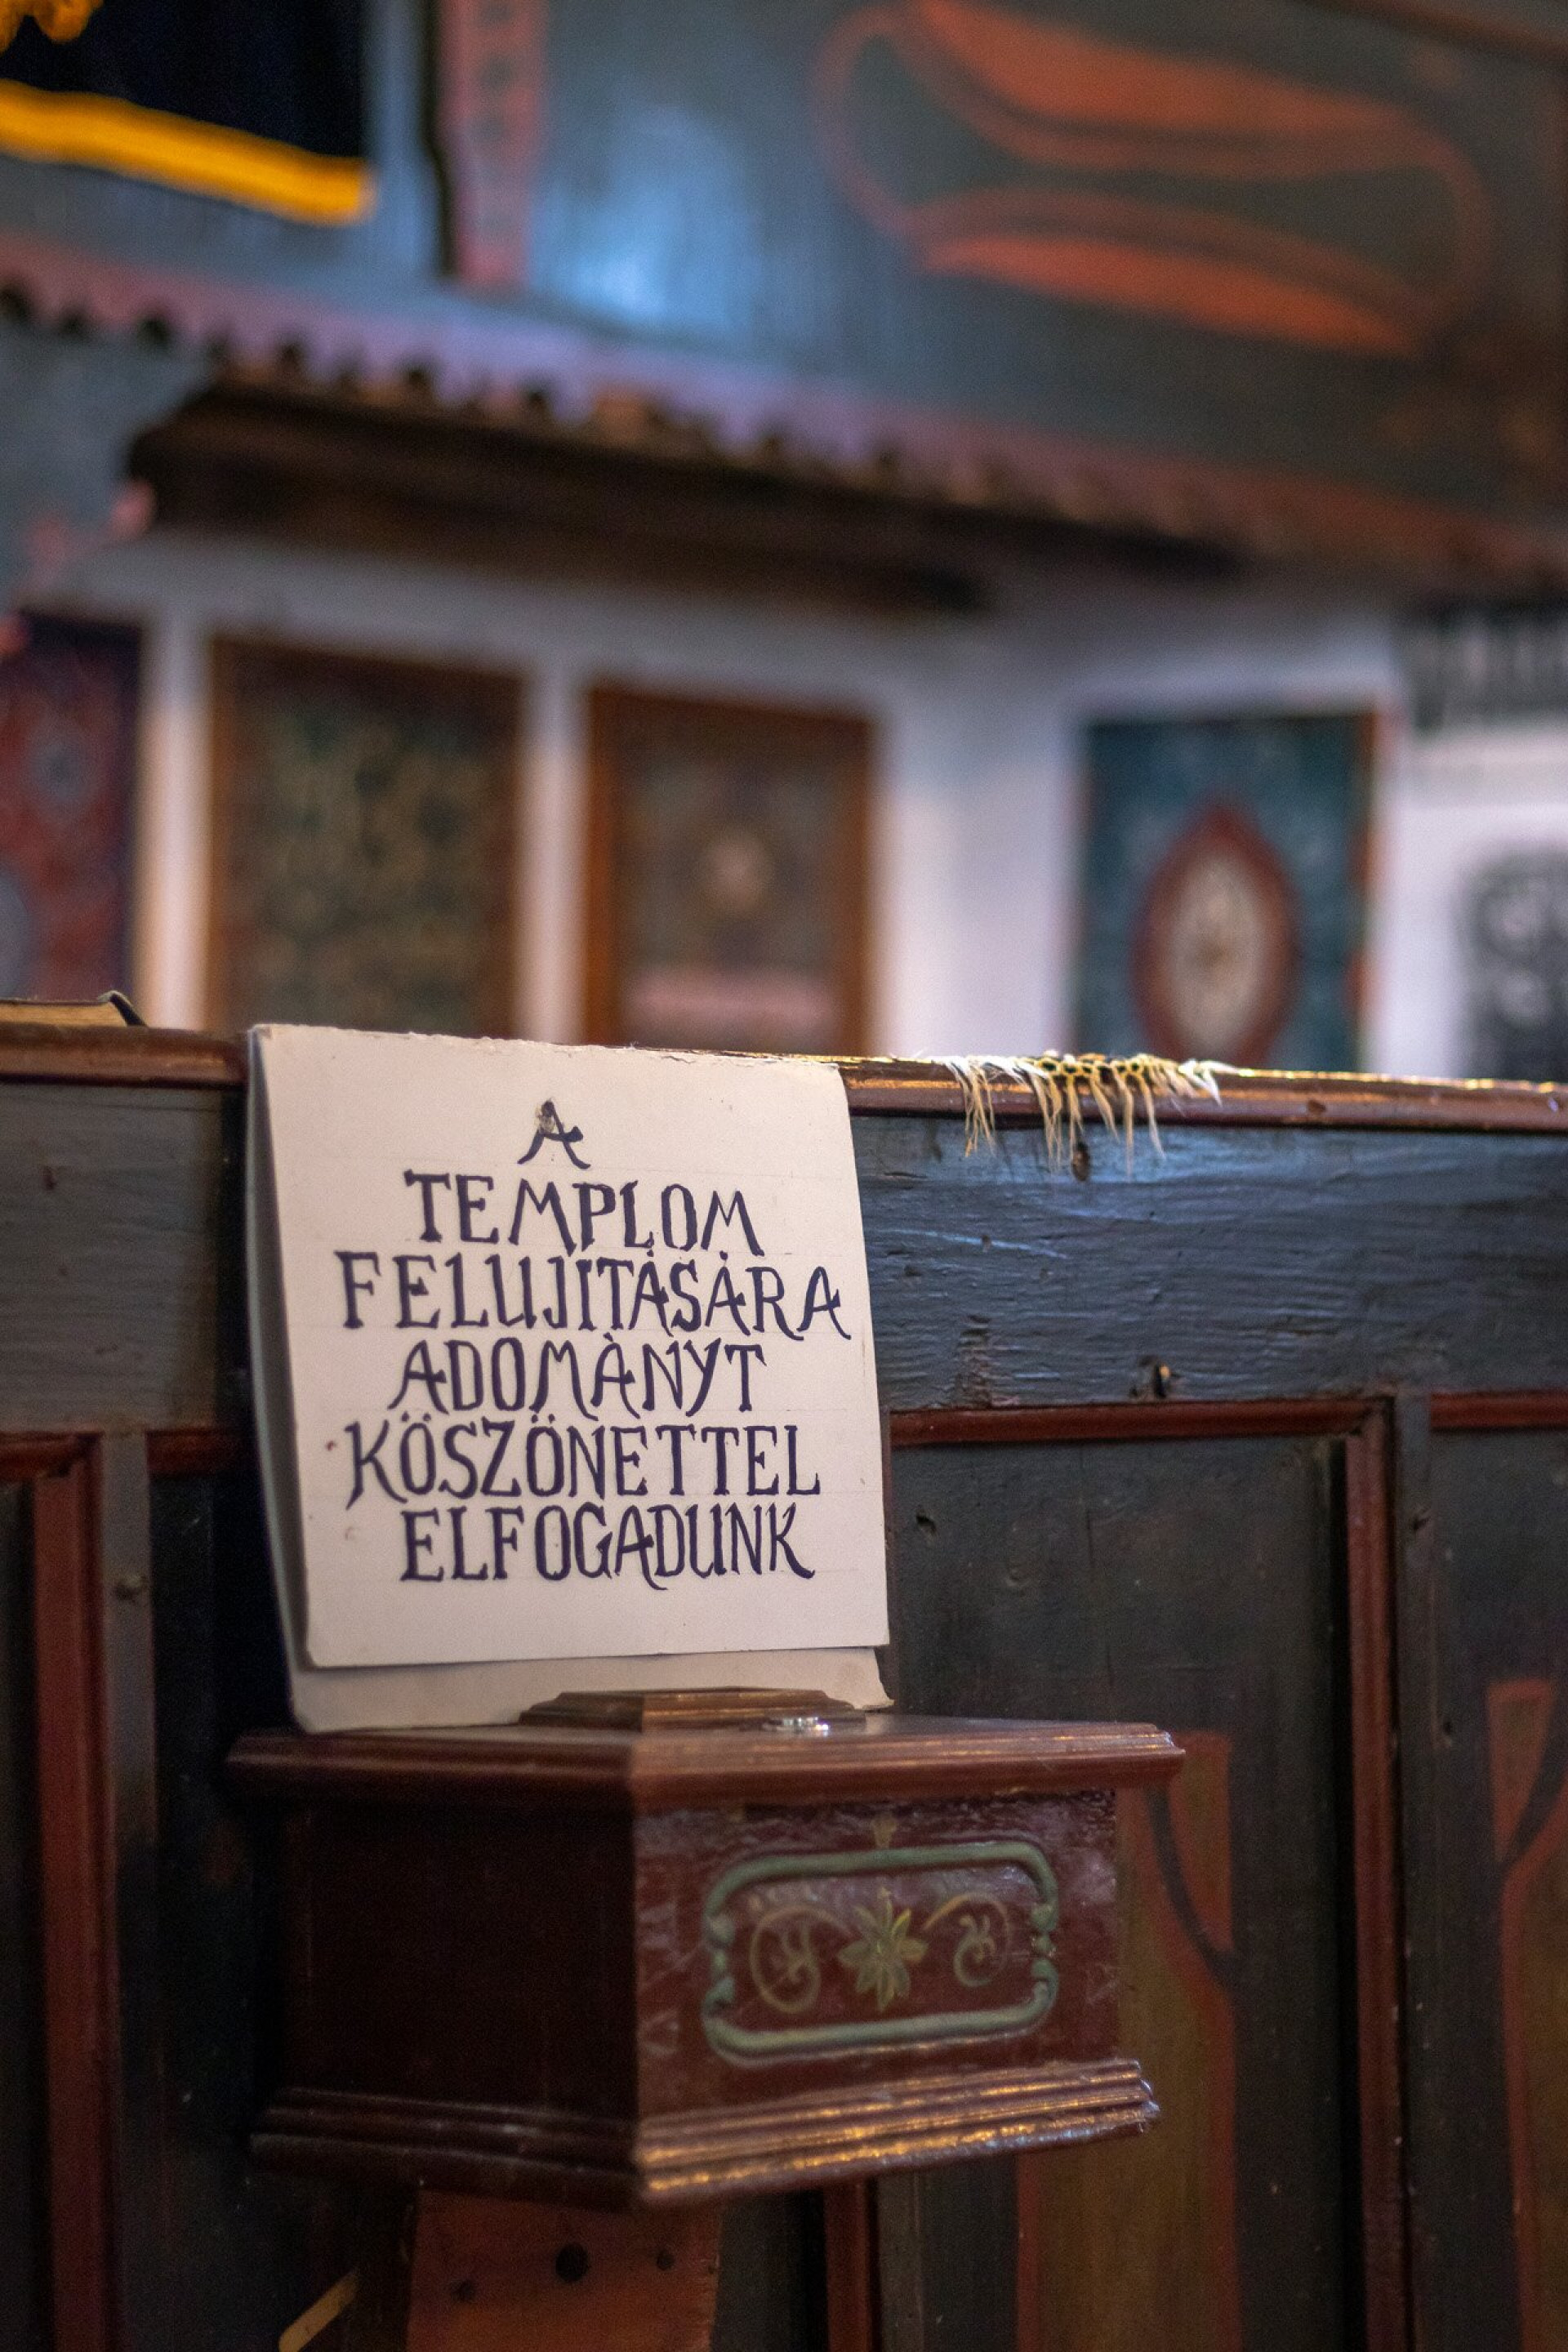 A
TEMPLOM
FELUJITÁSÁRA
ADOMÁNYT
KÖSZÖNETTEL
ELFOGADUNK